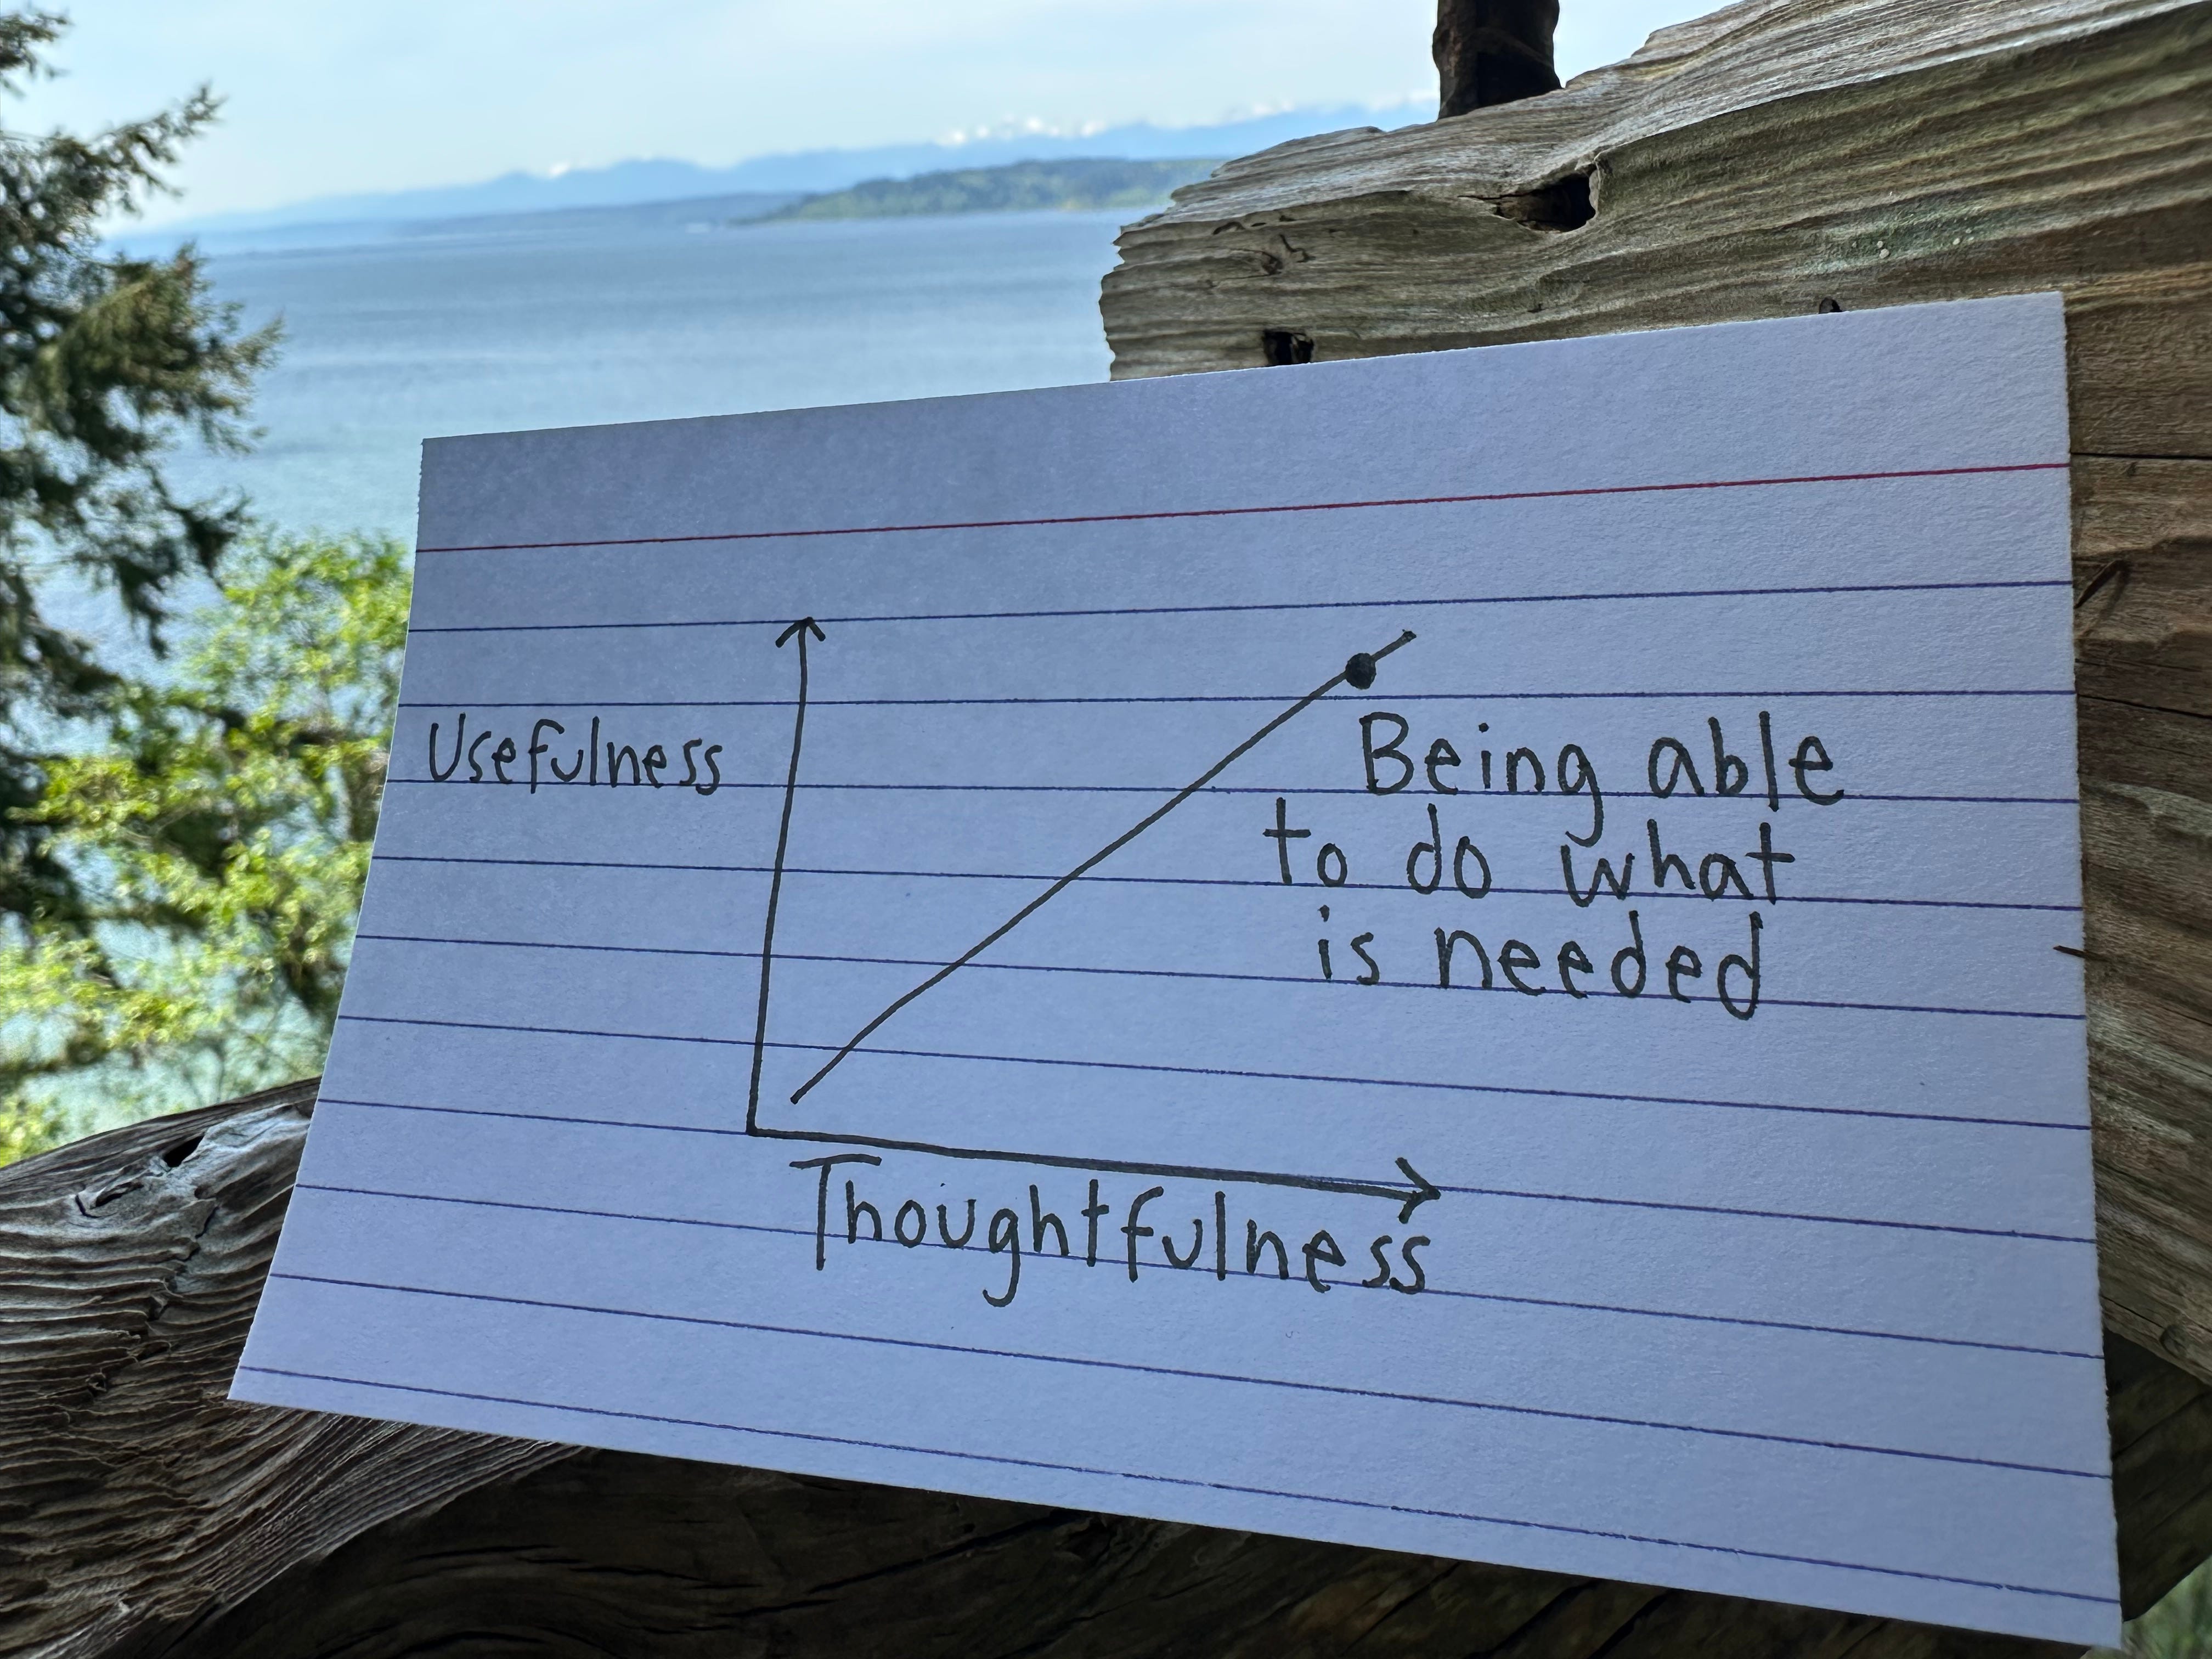 Usefulness
Being able
to do what
is needed
Thoughtfulness